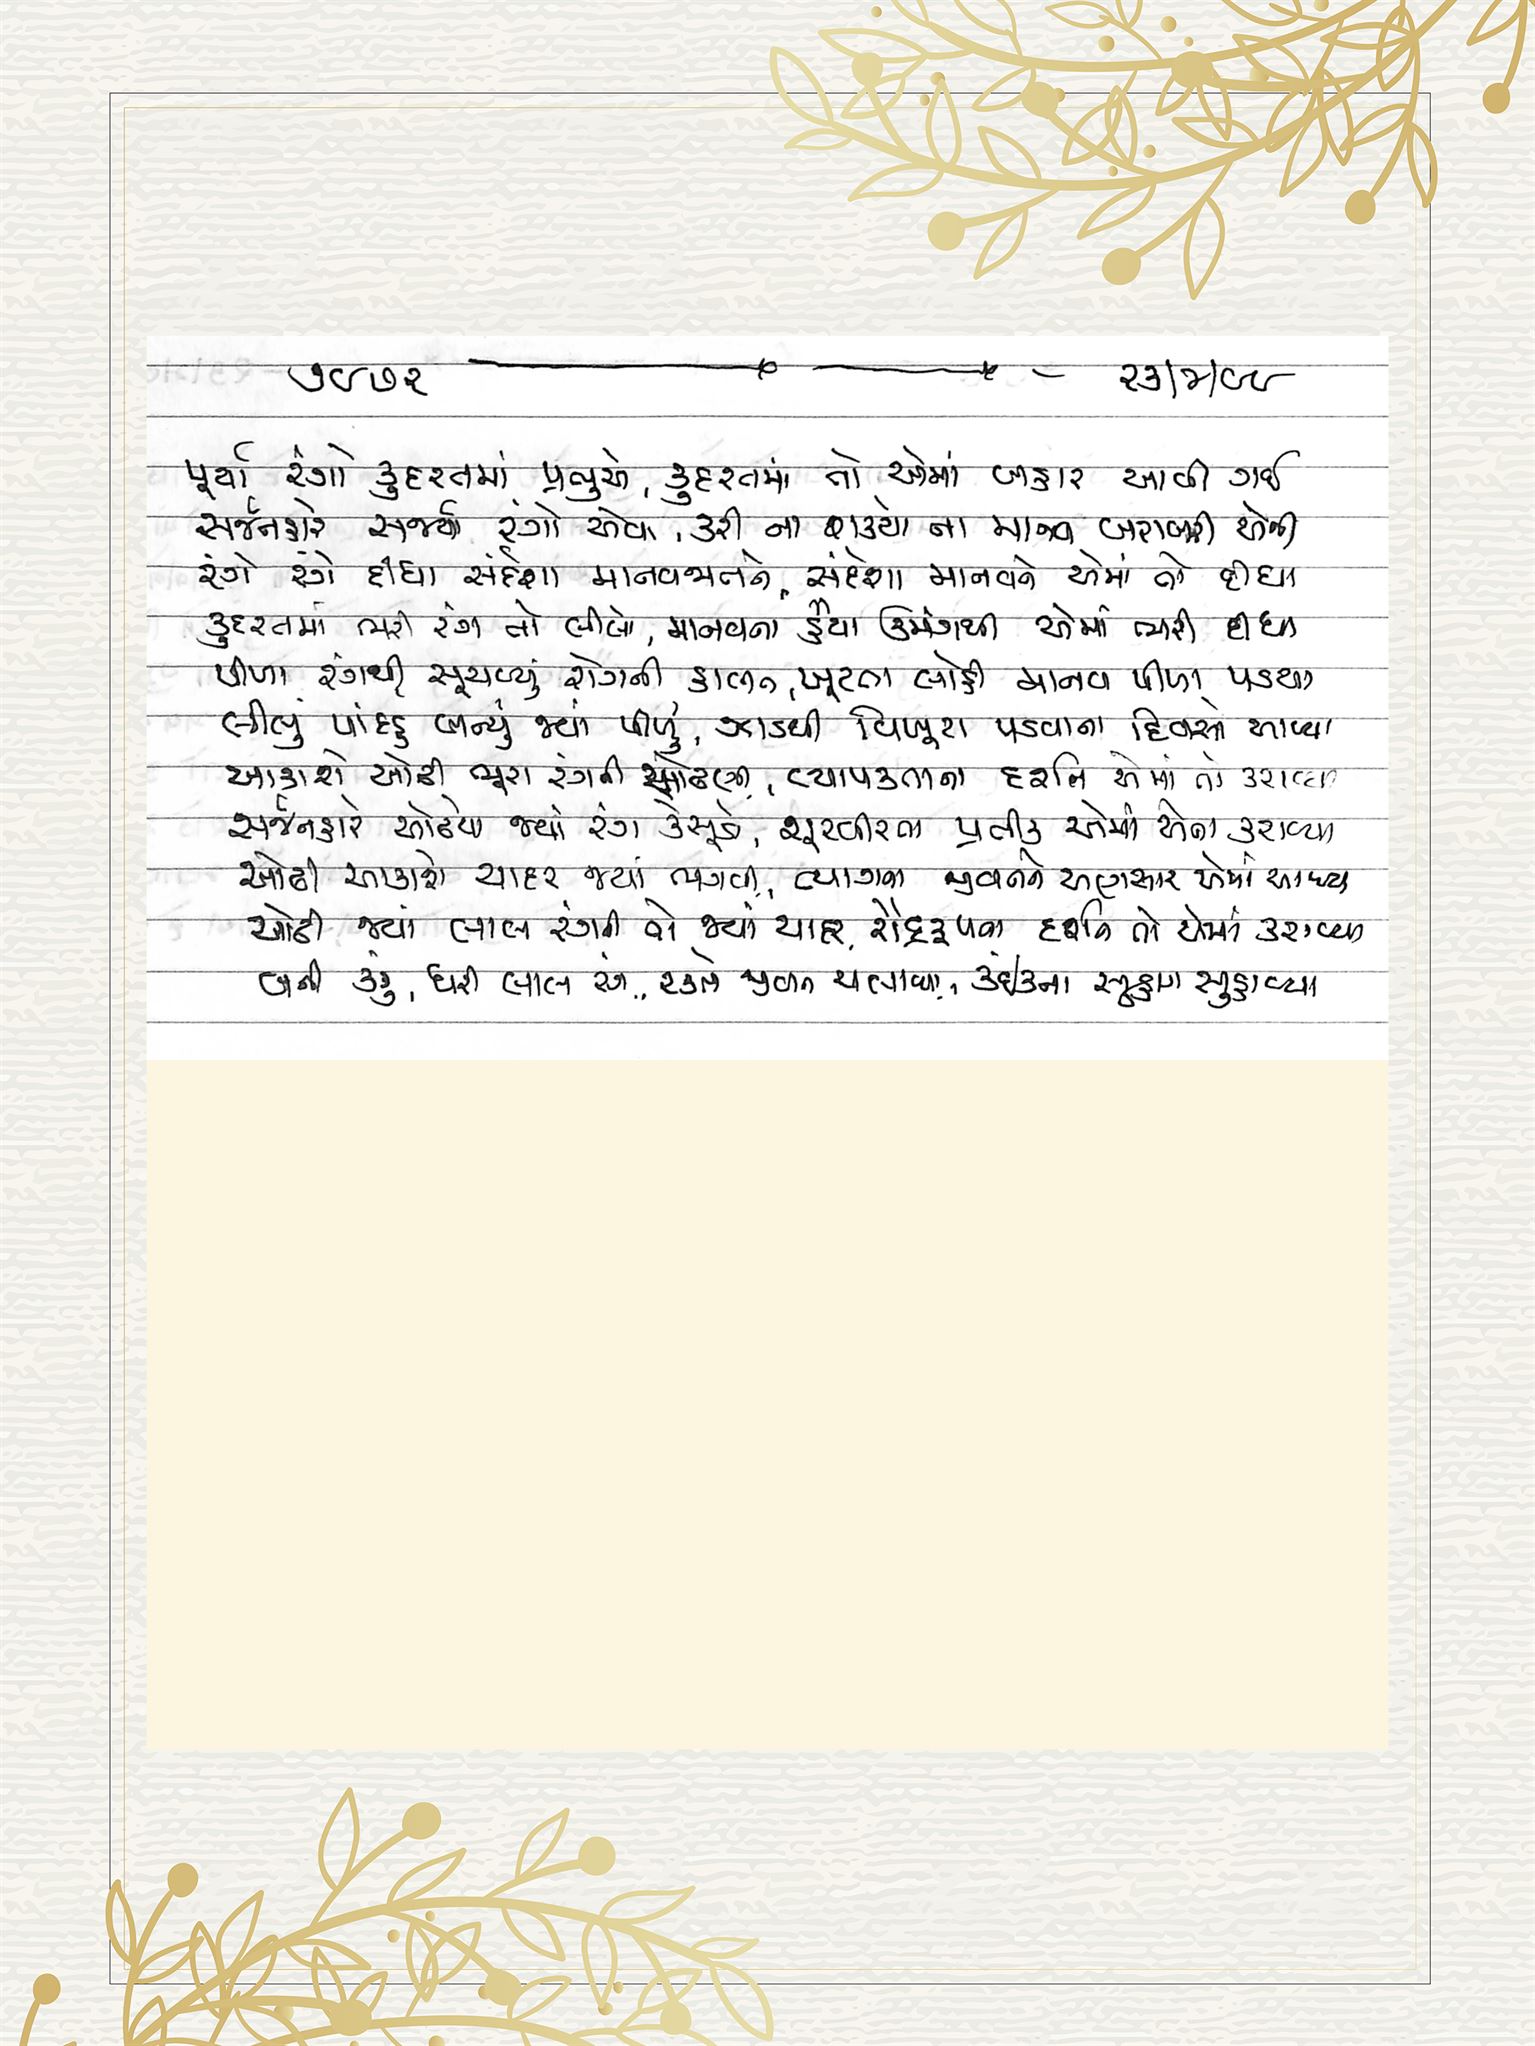 ૭૯૭૨ ૨૩/૪/૯૯
પૂર્યા રંગો કુદરતમાં પ્રભુએ, કુદરતમાં તો એમાં બહાર આવી ગઈ
સર્જનહારે સર્જ્યા રંગો એવા, કરી ના શક્યો ના માનવ બરાબરી એની
રંગે રંગે દીધા સંદેશા માનવજાતને, સંદેશા માનવને એમાં તો દીધા
કુદરતમાં ભરી રંગ તો લીલો, માનવના હૈયા ઉમંગથી એમાં ભરી દીધા
પીળા રંગથી સૂચવ્યું રોગની હાલત, ખૂટતા લોહી માનવ પીળા પડયા
લીલું પાંદડું બન્યું જ્યાં પીળું, ઝાડથી વિખૂટા પડવાના દિવસો આવ્યા
આકાશે ઓઢી ભૂરા રંગની ઓઢણી, વ્યાપકતાના દર્શન એમાં તો કરાવ્યા
સર્જનહારે ઓઢયો જ્યાં રંગ કેસૂડો, શૂરવીરતા પ્રતીક એમાં એના કરાવ્યા
ઓઢી આકાશે ચાદર જ્યાં ભગવી, ત્યાગના જીવનને અણસાર એમાં આપ્યા
ઓઢી જ્યાં લાલ રંગની તો જ્યાં ચાદર, રૌદ્રરૂપના દર્શન તો એમાં કરાવ્યા
બની કંકુ, ધરી લાલ રંગ, રક્તે જીવન ચલાવ્યા, કંઈકના સુહાગ સુહાવ્યા